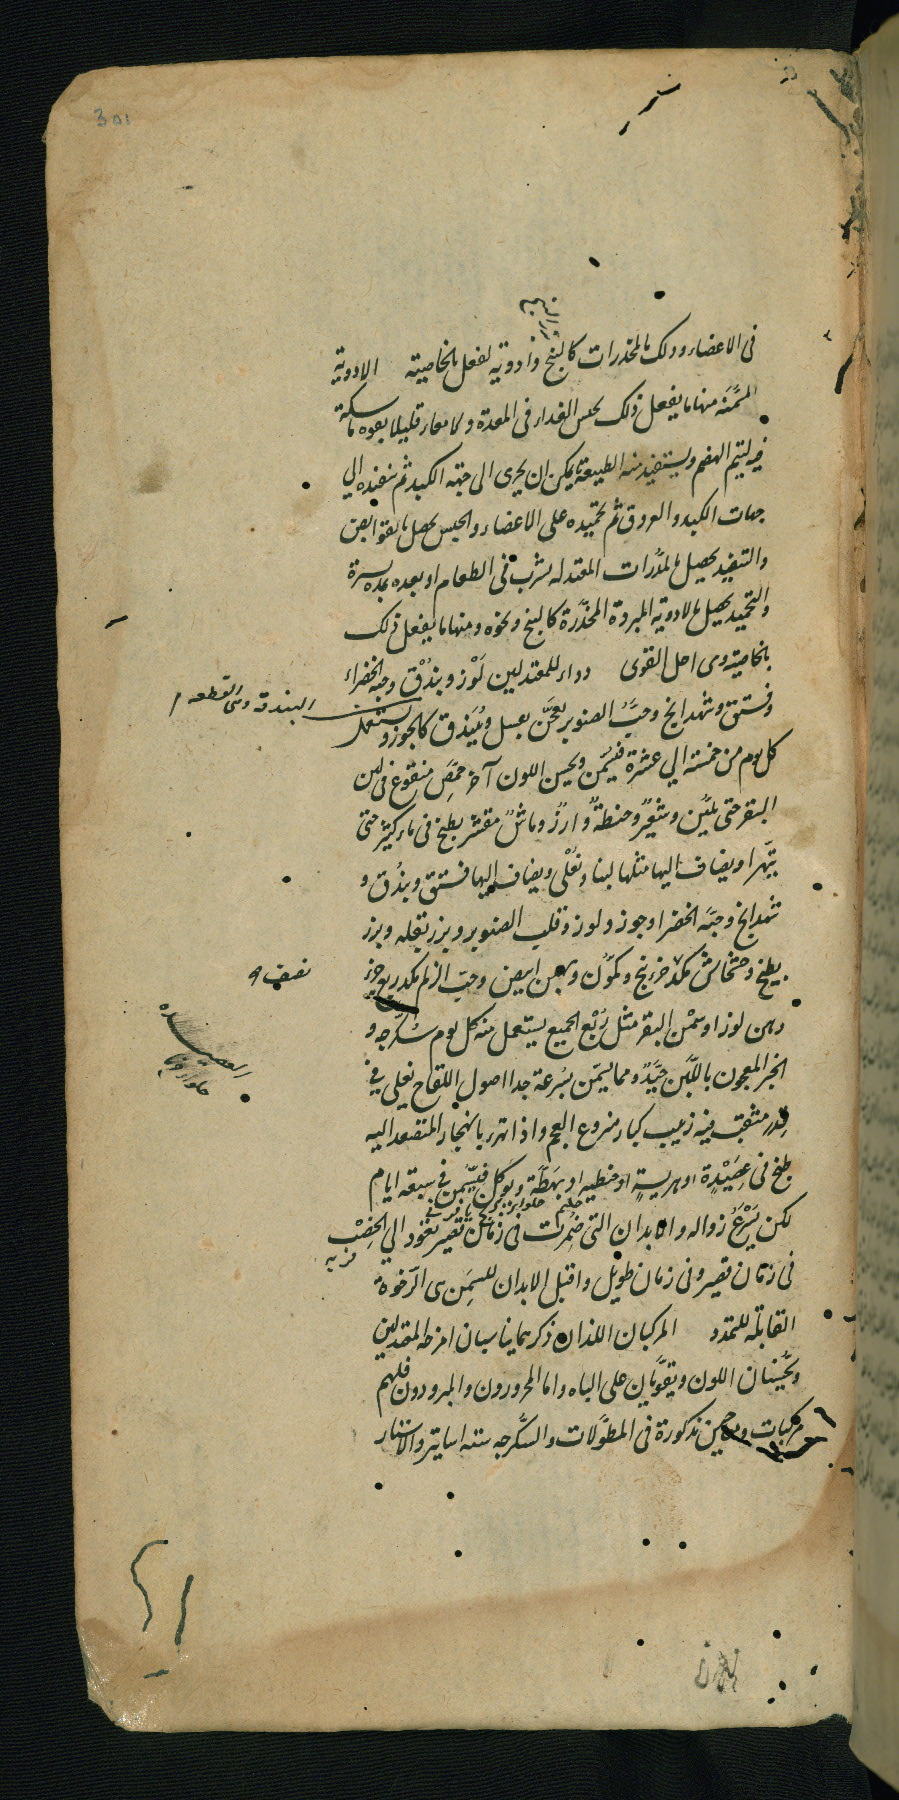 301
فى الاعضاء وذلك بالمخدرات كالبنج وأدوية تفعل بالخاصية الادوية
المسمَّنه منها ما يفعل ذلك بحبس الغداء فى المعدة والامعاء قليلا بقوه ماسكة
فيه ليتم الهضم ويستفيد منه الطبيعة ما يمكن ان يجرى الى جهة الكبد ثم بتنفيذه الي
جهات الكبد والعروق ثم بتجميده على الاعضاء والحبس يحصل بالقوابض
والتنفيذ يحصل بالمدرّات المعتدله يشرب فى الطعام او بعده بمده يسيرة
والتجميد يحصل بالادوية المبردة المخدّرة كالبنج ونحوه ومنها ما يفعل ذلك
بالخاصية وهى اجل القوى دواء للمعتدلين لَوْز وبندُق وحبه الخضراء
وفستق وشهدانج وحبّ الصنوبر يعجّن بعسل ويُبَندق كالجوز ويستعمل
البندقة وهى القطعه
كل يوم من خمسة الي عشرة فيسَمن ويحسن اللون آخر حمّص منقوع فى لبن
البقر حتى يليّن وشعيرٌ وحنطةٌ وارزٌ وماشٌ مقشر يطبخ فى ماء كثير حتى
يتهرا ويضاف اليها مثلها لبنا وتُغْلى ويضاف اليها فستق وبندُق و
شهدانج وحبّه الخضرا وجوز ولوز وقلب الصنوبر وبزر بقله وبزر
بطيخ وخشخاش مكدّ جزء بنج وكمّون وبهمن ابيض وحبّ الزلم مكد ربع جزء
نصف
دهن لوز او سمْن البقر مثل رُبْع الجميع يستعمل منه كل يوم سُكرّجه و
الخبز المعجون باللّبَن جَيّدٌ ومما يسَمّن بسُرعة جدا اصول اللقاح تغلى فى
قدر مثقب فيه زبيب كبار منزوع العجم واذا تهرر بالبخار المتصعد اليه
طبخ فى عصَيْدة او هريسة او حنطيه او بهَطّة ويوكل فيسّمن فى سبعه ايام
لكن يَسْرعُ زواله والابدان التى ضمُرت فى زمان قصير تعود الي الخِصْب
فى زمان قصير وفى زمان طويل واقبل الابدان للسِمَن هى الرّخوة
القابله للتمدد المركبان اللذان ذكرهما يناسبان امزجه المعتدلين
ويحُسّنان اللون ويقوّيان على الباه واما المحرورون والمبرودون فلهم
مركبات ومعاجين مذكورة فى المطوّلات والسكّرجه سته اساتير والاستار